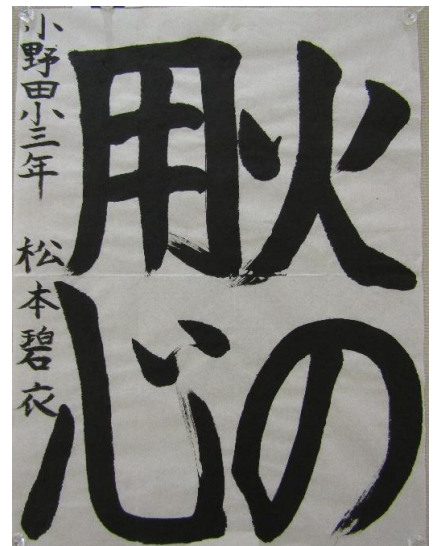 火の
用心
小野田小三年 松本碧衣